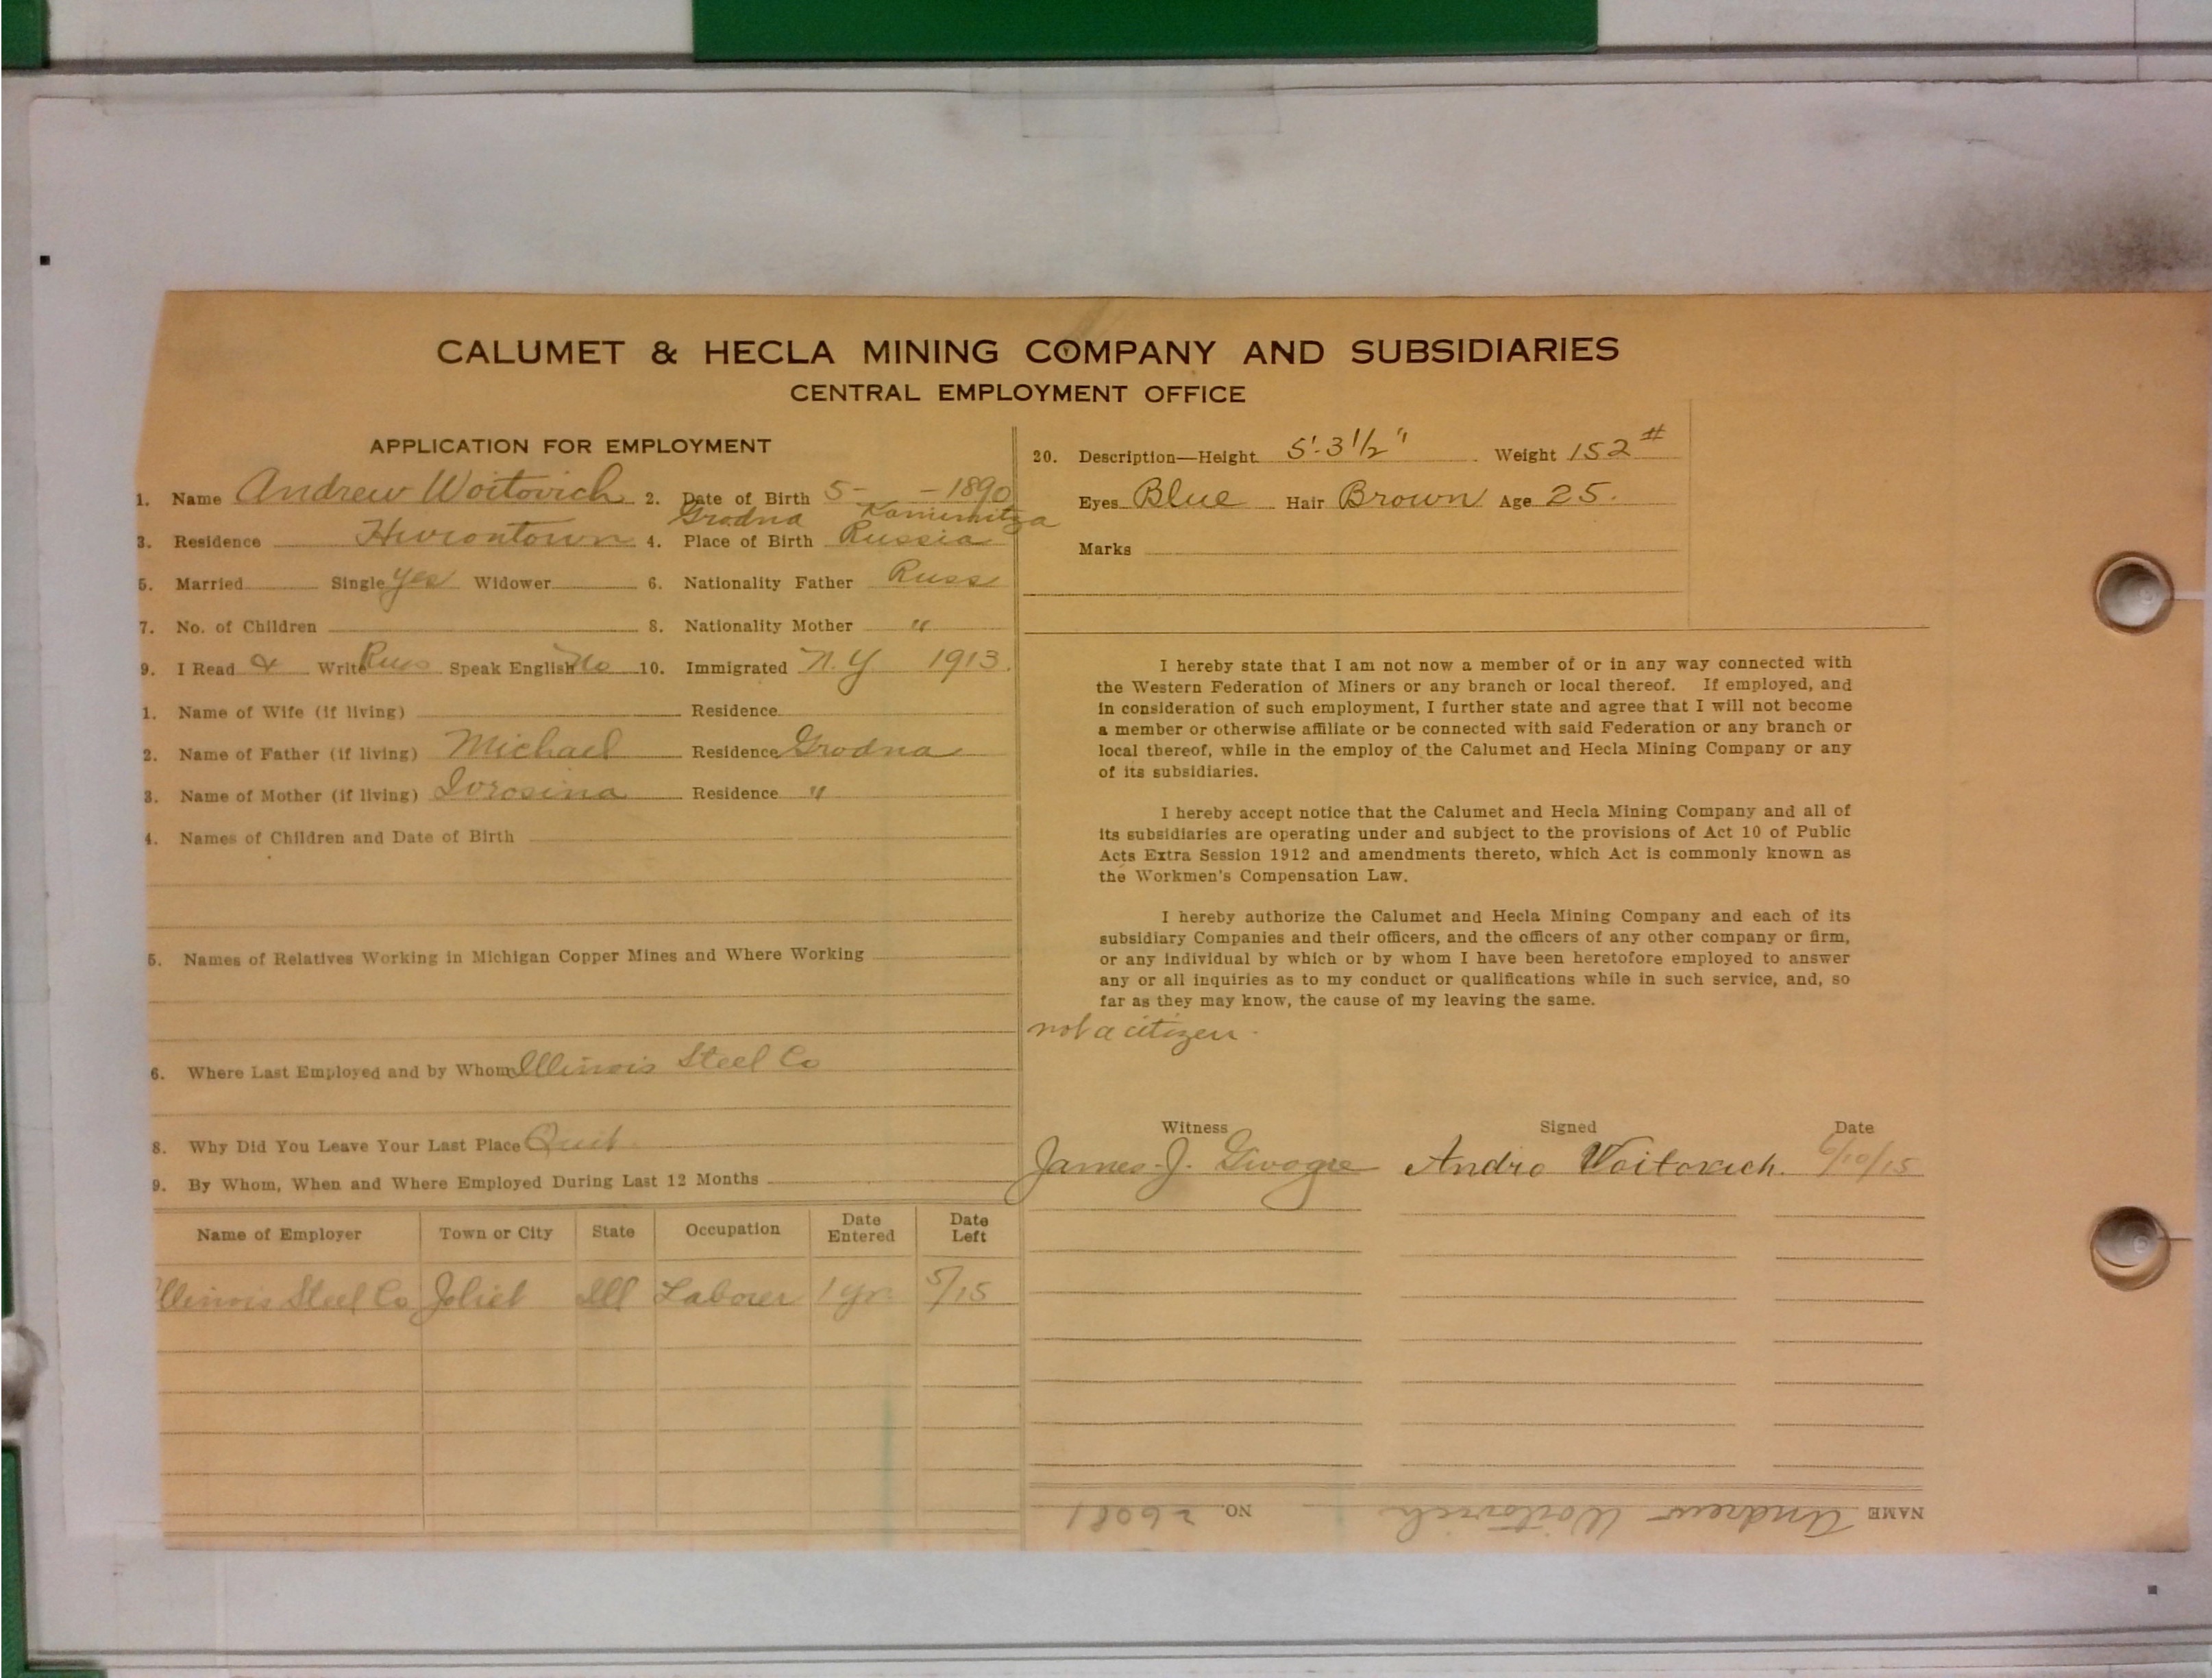 CALUMET & HECLA MINING COMPANY AND SUBSIDIARIES
CENTRAL EMPLOYMENT OFFICE
APPLICATION FOR EMPLOYMENT
1. Name Andrew Woitovich 2. Date of Birth 5- -1890
Grodna Kamenitza
3. Residence Hurontown 4. Place of Birth Russia
5. Married Single yes Widower 6. Nationality Father Russ
7. No. of Children 8. Nationality Mother "
9. I Read & Write Russ Speak English No 10. Immigrated N.Y 1913.
1. Name of Wife (if living) Residence
2. Name of Father (if living) Michael Residence Grodna
3. Name of Mother (if living) Residence "
4. Names of Children and Date of Birth
5. Names of Relatives Working in Michigan Copper Mines and Where Working
6. Where Last Employed and by Whom Illinois Steel Co
8. Why Did You Leave Your Last Place Quit
9. By Whom, When and Where Employed During Last 12 Months
Name of Employer Town or City State Occupation Date Entered Date Left
Illinois Steel Co Joliet Ill Laborer 1 yr. 5/15
20. Description—Height 5'-3 1/2" Weight 152#
Eyes Blue Hair Brown Age 25.
Marks
I hereby state that I am not now a member of or in any way connected with
the Western Federation of Miners or any branch or local thereof. If employed, and
in consideration of such employment, I further state and agree that I will not become
a member or otherwise affiliate or be connected with said Federation or any branch or
local thereof, while in the employ of the Calumet and Hecla Mining Company or any
of its subsidiaries.
I hereby accept notice that the Calumet and Hecla Mining Company and all of
its subsidiaries are operating under and subject to the provisions of Act 10 of Public
Acts Extra Session 1912 and amendments thereto, which Act is commonly known as
the Workmen's Compensation Law.
I hereby authorize the Calumet and Hecla Mining Company and each of its
subsidiary Companies and their officers, and the officers of any other company or firm,
or any individual by which or by whom I have been heretofore employed to answer
any or all inquiries as to my conduct or qualifications while in such service, and, so
far as they may know, the cause of my leaving the same.
not a citizen.
Witness Signed Date
James J. Andro Woitovich. 6/10/15
NAME Andrew Woitovich NO. 26081